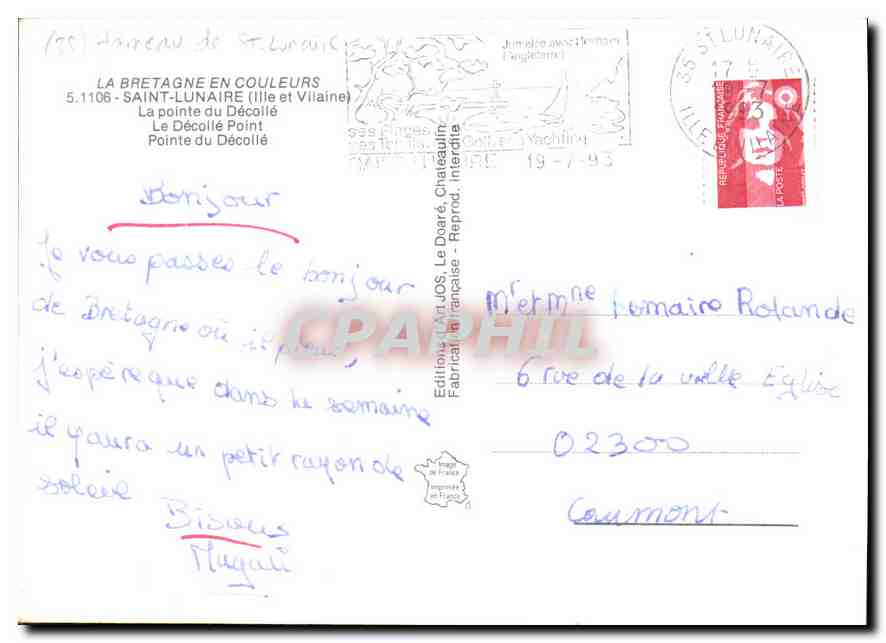 (35) Hameau de St. Lunaire
LA BRETAGNE EN COULEURS
5.1106 - SAINT-LUNAIRE (Ille et Vilaine)
La pointe du Décollé
Le Décollé Point
Pointe du Décollé
Bonjour
Je vous passes le bonjour
de Bretagne où il pleut,
j'espère que dans la semaine
il y aura un petit rayon de
soleil
Bisous
Magali
Jumelée avec
(Angleterre)
ses Plages
Golf Yachting
19-7-93
35 ST LUNAIRE
17 H
93
ILLE
REPUBLIQUE FRANÇAISE
LA POSTE
Editions d'Art JOS, Le Doaré, Chateaulin
Fabrication française - Reprod. interdite
CPAPHIL
Mr et Mme Lemaire Rolande
6 rue de la vieille Eglise
02300
Caumont
Image
de France
Imprimée
en France